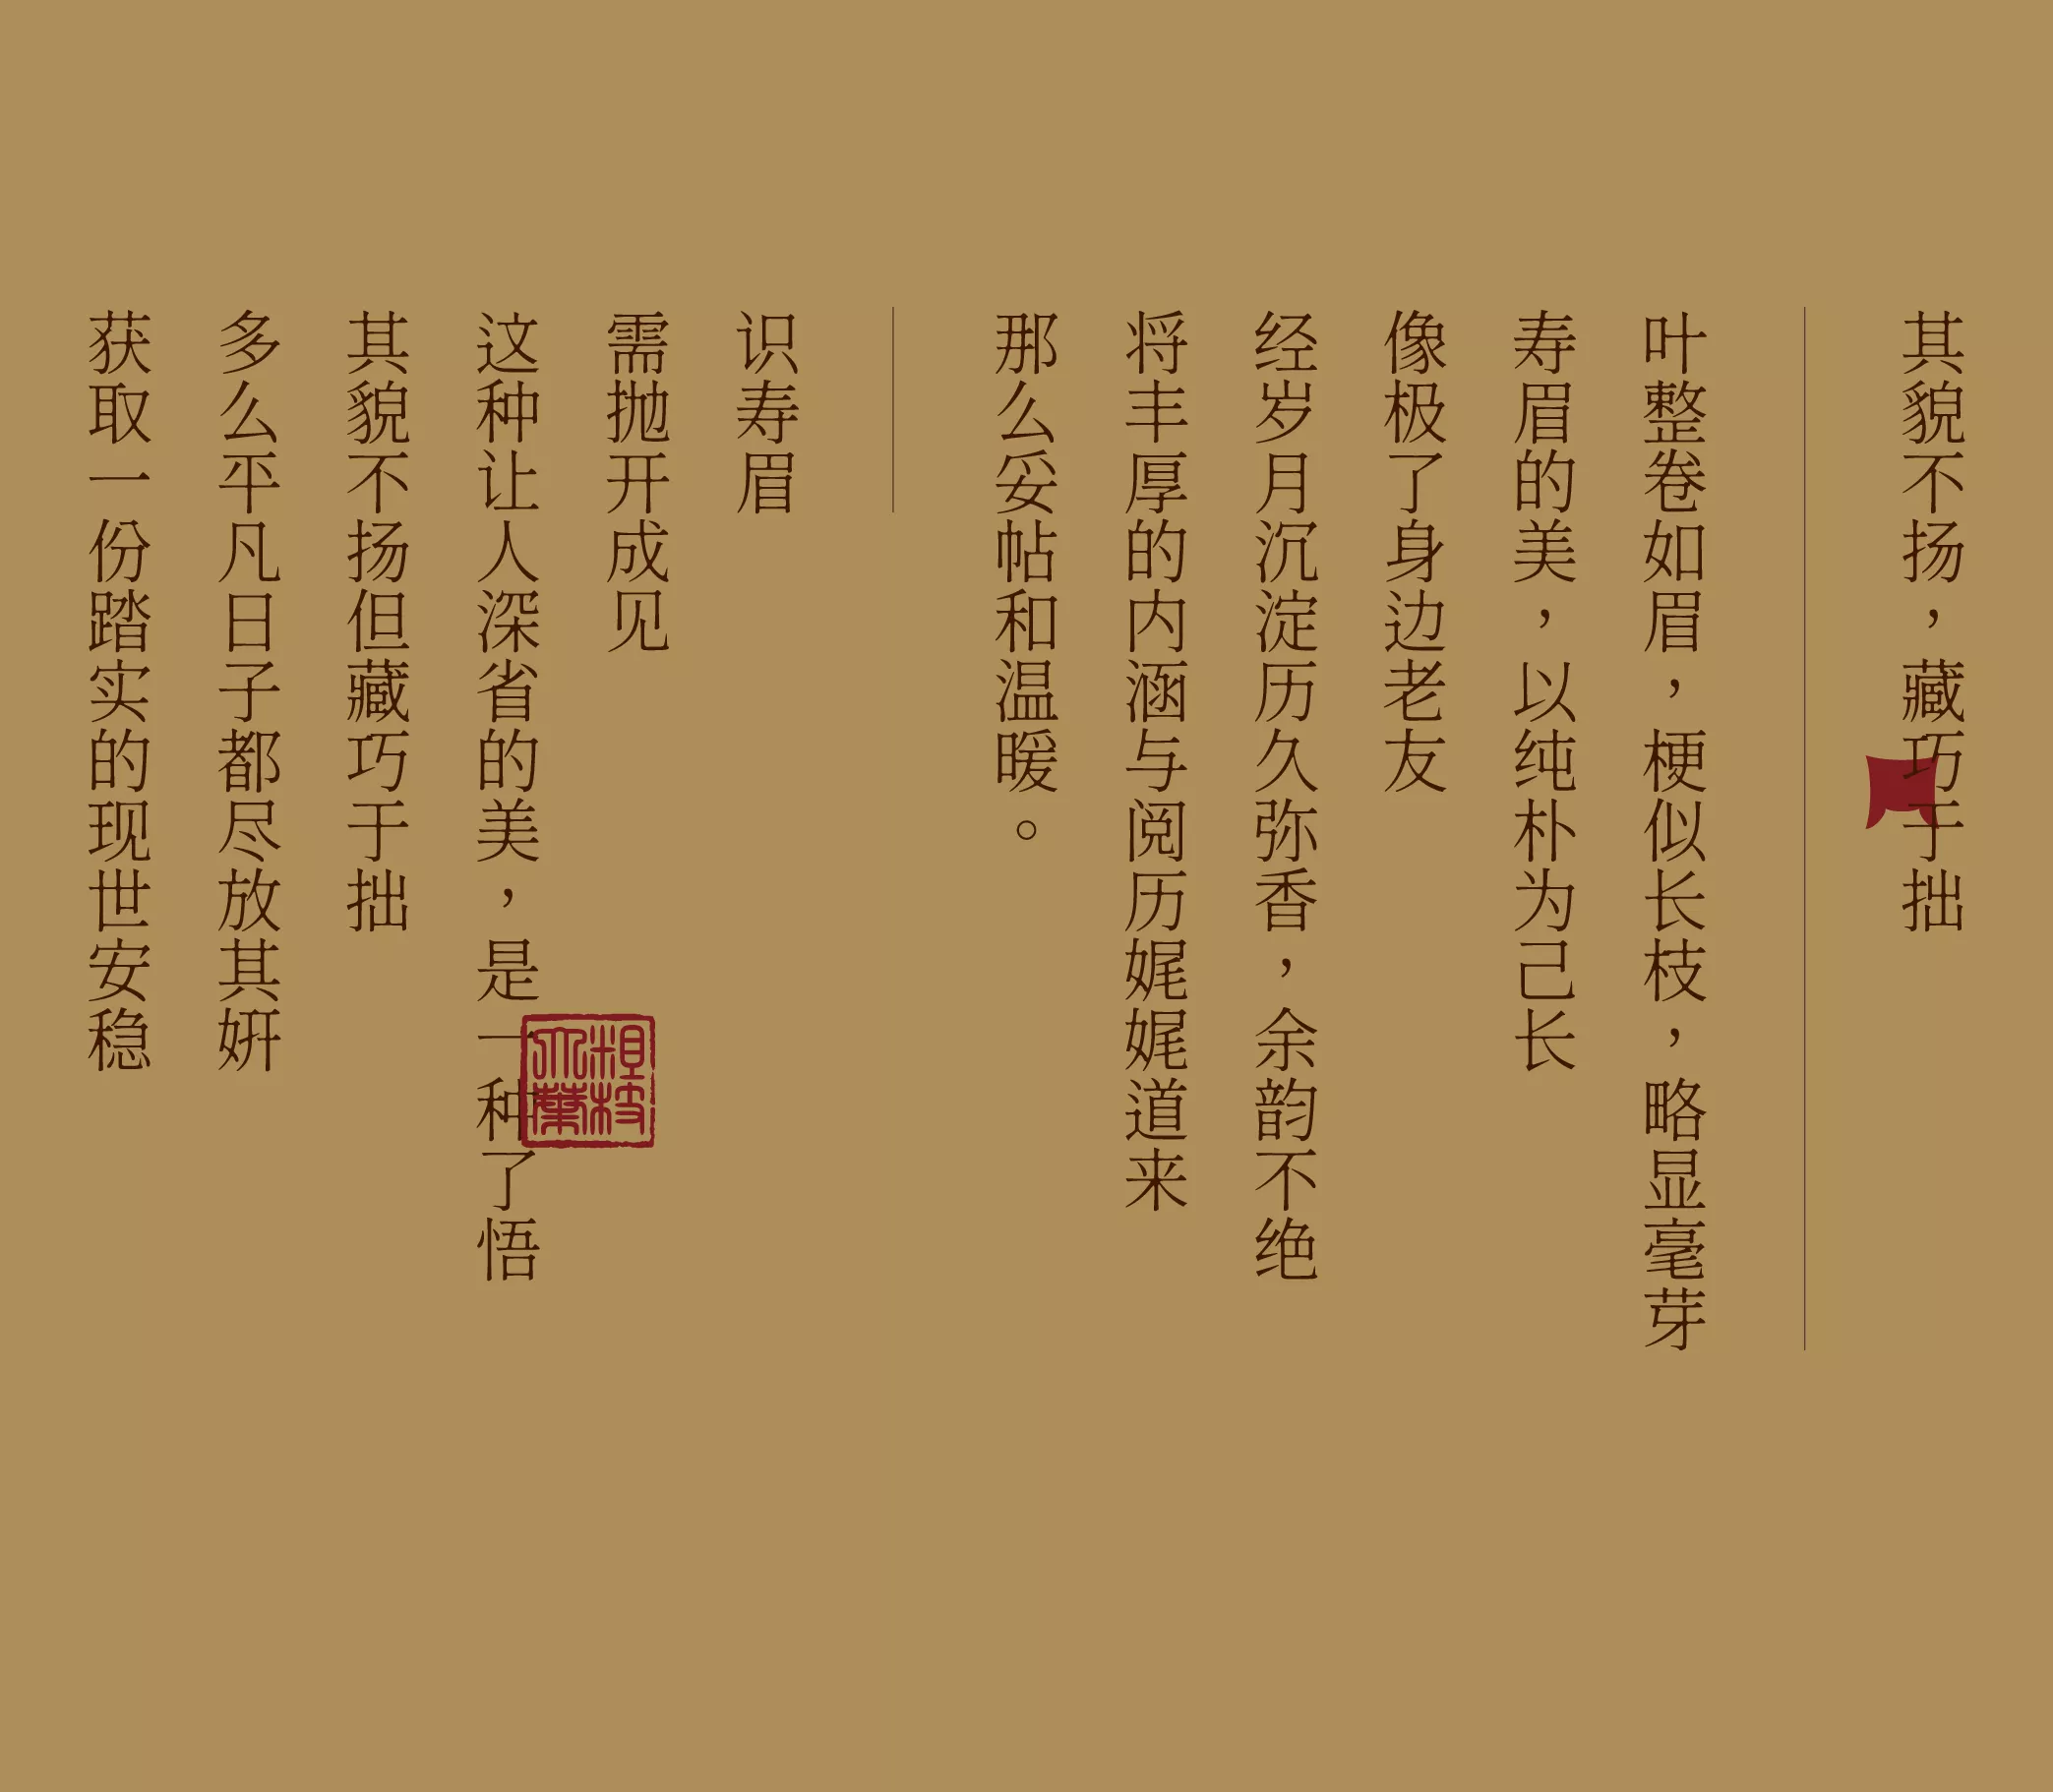 其貌不扬，藏巧于拙
叶整卷如眉，梗似长枝，略显毫芽
寿眉的美，以纯朴为己长
像极了身边老友
经岁月沉淀历久弥香，余韵不绝
将丰厚的内涵与阅历娓娓道来
那么妥帖和温暖。
识寿眉
需抛开成见
这种让人深省的美，是一种了悟
其貌不扬但藏巧于拙
多么平凡日子都尽放其妍
获取一份踏实的现世安稳